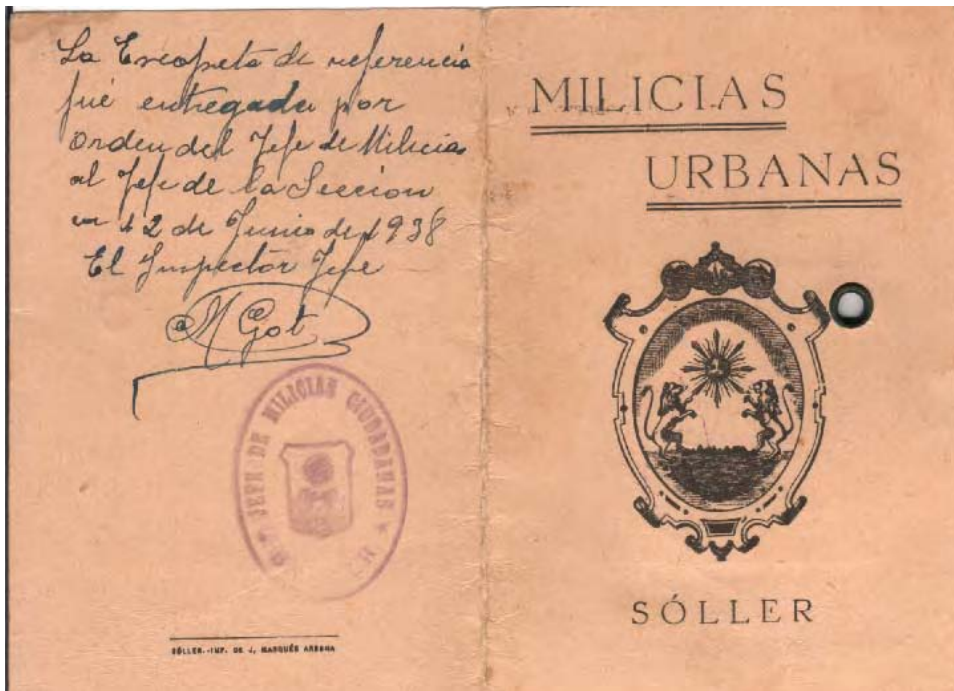 La Escopeta de referencia
fué entregada por
orden del Jefe de Milicias
al Jefe de la Sección
en 12 de Junio de 1938
El Inspector Jefe
M Got
JEFE DE MILICIAS CIUDADANAS
SÓLLER.-IMP. DE J. MARQUÉS ARBONA
MILICIAS
URBANAS
SÓLLER